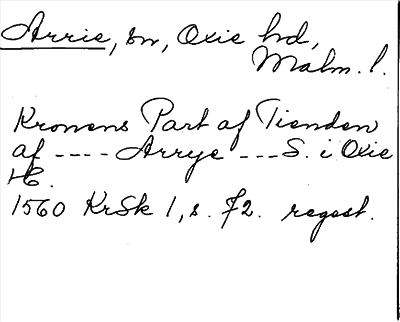 Arrie, sn, Oxie hd,
Malm. l.
Kronens Part af Tienden
af ---- Arrye ---S. i Oxie
H.
1560 KrSk 1, s. 72. regest.